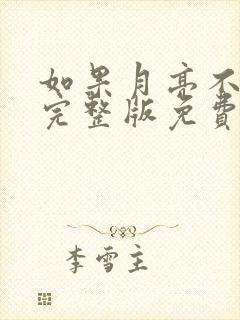 如果月亮不
完整版免费
李雪主